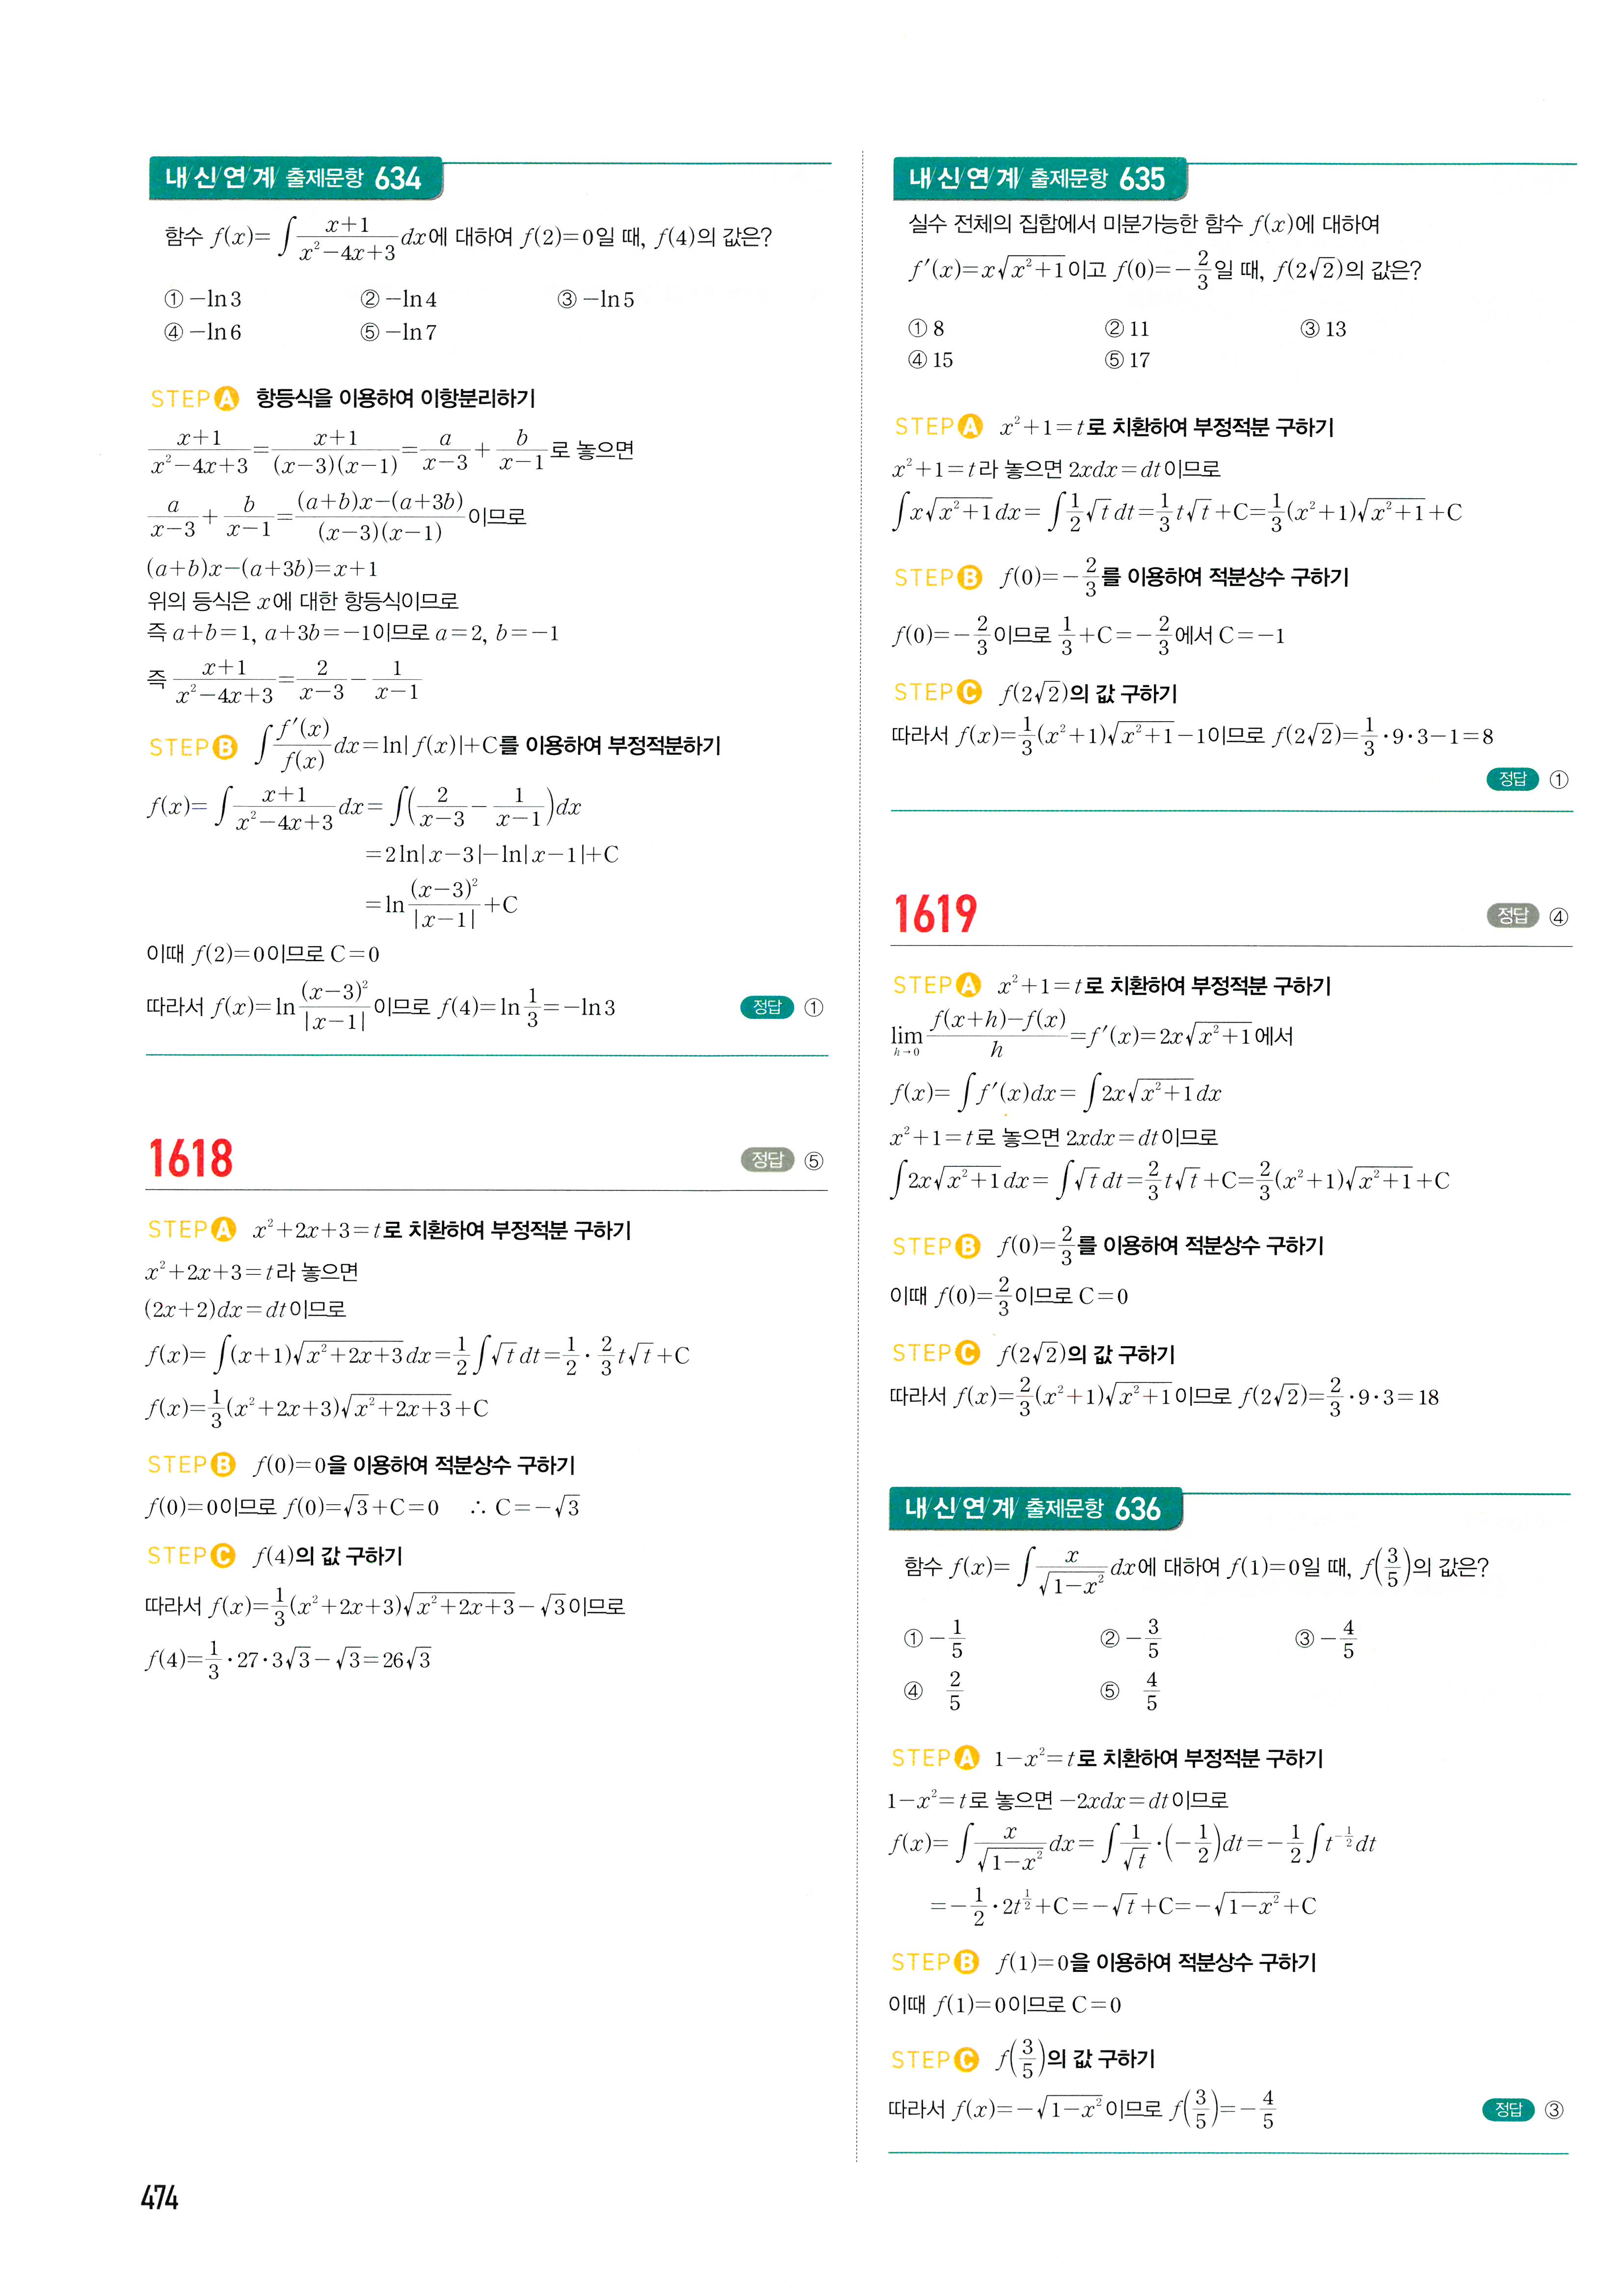 내신연계 출제문항 634
함수 f(x)=∫ (x+1)/(x²−4x+3) dx에 대하여 f(2)=0일 때, f(4)의 값은?
① −ln3 ② −ln4 ③ −ln5
④ −ln6 ⑤ −ln7
STEP A 항등식을 이용하여 이항분리하기
(x+1)/(x²−4x+3)=(x+1)/((x−3)(x−1))=a/(x−3)+b/(x−1)로 놓으면
a/(x−3)+b/(x−1)=((a+b)x−(a+3b))/((x−3)(x−1))이므로
(a+b)x−(a+3b)=x+1
위의 등식은 x에 대한 항등식이므로
즉 a+b=1, a+3b=−1이므로 a=2, b=−1
즉 (x+1)/(x²−4x+3)=2/(x−3)−1/(x−1)
STEP B ∫ f′(x)/f(x) dx=ln|f(x)|+C를 이용하여 부정적분하기
f(x)=∫ (x+1)/(x²−4x+3) dx=∫(2/(x−3)−1/(x−1))dx
=2ln|x−3|−ln|x−1|+C
=ln (x−3)²/|x−1| +C
이때 f(2)=0이므로 C=0
따라서 f(x)=ln (x−3)²/|x−1| 이므로 f(4)=ln 1/3=−ln3 정답 ①
1618 정답 ⑤
STEP A x²+2x+3=t로 치환하여 부정적분 구하기
x²+2x+3=t라 놓으면
(2x+2)dx=dt이므로
f(x)=∫(x+1)√(x²+2x+3)dx=1/2∫√t dt=1/2·2/3 t√t+C
f(x)=1/3(x²+2x+3)√(x²+2x+3)+C
STEP B f(0)=0을 이용하여 적분상수 구하기
f(0)=0이므로 f(0)=√3+C=0 ∴ C=−√3
STEP C f(4)의 값 구하기
따라서 f(x)=1/3(x²+2x+3)√(x²+2x+3)−√3이므로
f(4)=1/3·27·3√3−√3=26√3
474
내신연계 출제문항 635
실수 전체의 집합에서 미분가능한 함수 f(x)에 대하여
f′(x)=x√(x²+1)이고 f(0)=−2/3일 때, f(2√2)의 값은?
① 8 ② 11 ③ 13
④ 15 ⑤ 17
STEP A x²+1=t로 치환하여 부정적분 구하기
x²+1=t라 놓으면 2xdx=dt이므로
∫x√(x²+1)dx=∫1/2√t dt=1/3 t√t+C=1/3(x²+1)√(x²+1)+C
STEP B f(0)=−2/3를 이용하여 적분상수 구하기
f(0)=−2/3이므로 1/3+C=−2/3에서 C=−1
STEP C f(2√2)의 값 구하기
따라서 f(x)=1/3(x²+1)√(x²+1)−1이므로 f(2√2)=1/3·9·3−1=8
정답 ①
1619 정답 ④
STEP A x²+1=t로 치환하여 부정적분 구하기
lim h→0 (f(x+h)−f(x))/h=f′(x)=2x√(x²+1)에서
f(x)=∫f′(x)dx=∫2x√(x²+1)dx
x²+1=t로 놓으면 2xdx=dt이므로
∫2x√(x²+1)dx=∫√t dt=2/3 t√t+C=2/3(x²+1)√(x²+1)+C
STEP B f(0)=2/3를 이용하여 적분상수 구하기
이때 f(0)=2/3이므로 C=0
STEP C f(2√2)의 값 구하기
따라서 f(x)=2/3(x²+1)√(x²+1)이므로 f(2√2)=2/3·9·3=18
내신연계 출제문항 636
함수 f(x)=∫ x/√(1−x²) dx에 대하여 f(1)=0일 때, f(3/5)의 값은?
① −1/5 ② −3/5 ③ −4/5
④ 2/5 ⑤ 4/5
STEP A 1−x²=t로 치환하여 부정적분 구하기
1−x²=t로 놓으면 −2xdx=dt이므로
f(x)=∫ x/√(1−x²) dx=∫ 1/√t·(−1/2)dt=−1/2∫t^(−1/2)dt
=−1/2·2t^(1/2)+C=−√t+C=−√(1−x²)+C
STEP B f(1)=0을 이용하여 적분상수 구하기
이때 f(1)=0이므로 C=0
STEP C f(3/5)의 값 구하기
따라서 f(x)=−√(1−x²)이므로 f(3/5)=−4/5 정답 ③